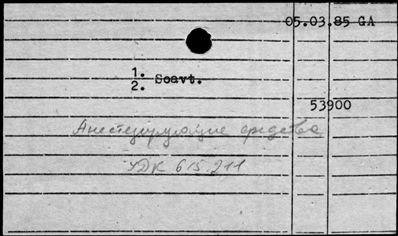 05.03.85 GA
1. Soavt.
2.
53900
Анестезирующие средства
УДК 615.211